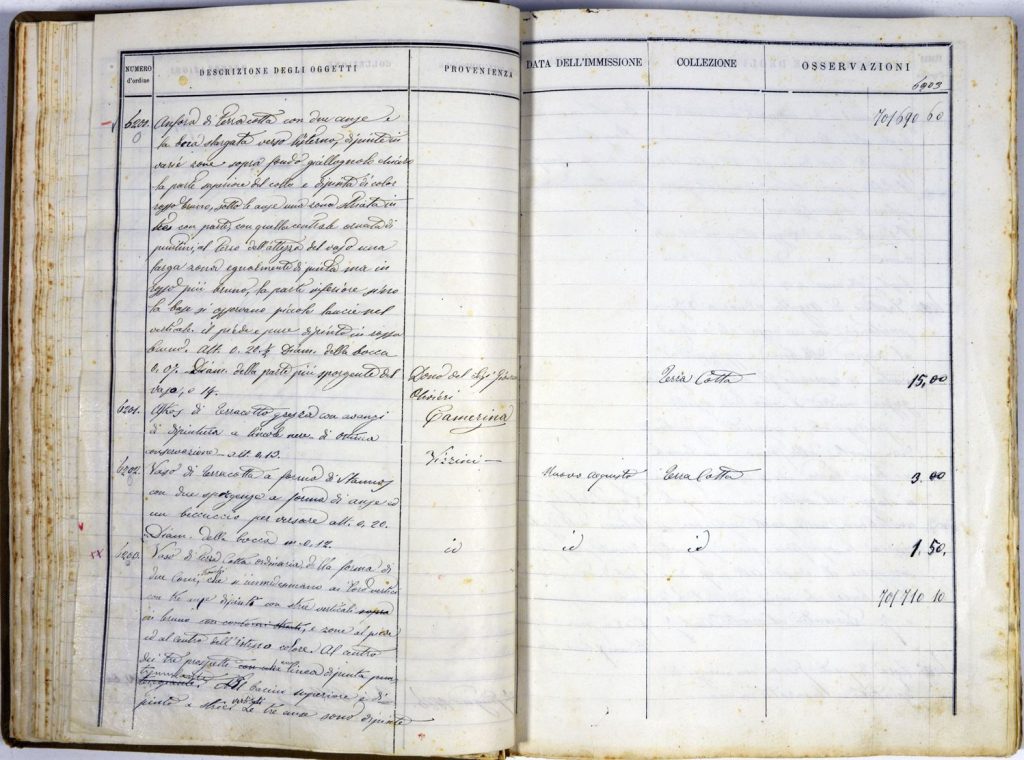 NUMERO d'ordine DESCRIZIONE DEGLI OGGETTI PROVENIENZA DATA DELL'IMMISSIONE COLLEZIONE OSSERVAZIONI
6903
6200. Anfora di Terracotta con due anse e 70/690 60
la bocca sbargata verso l'esterno, dipinte in
varie zone sopra fondo giallagnolo chiaro
la parte superiore del collo e dipinta di color
rosso bruno, sotto le anse una zona striata in
con parte, con quella centrale ornata di
puntini, al terzo dell'altezza del vaso una
larga zona egualmente dipinta ma in
rosso più bruno, la parte inferiore verso
la base si osservano piccole lancie nel
verticale il piede e pure dipinto in rosso
bruno. Alt. 0.20. Diam. della bocca
0.07. Diam. della parte più sporgente del Dono del Sigr Terra Cotta 15,00
vaso, 0 14. Olivieri
6201. di Terracotta grezza con avanzi Camerina
di dipintura a linee nere di ottima
conservazione - alt. 0.12. Vizzini —
6202. Vaso di Terracotta a forma di Stamnos Nuovo acquisto Terra Cotta 3.00
con due sporgenze a forma di anse ed
un beccuccio per versare alt. 0.20.
Diam. della bocca m. 0.12. id id id 1.50.
Vaso di Terra Cotta ordinaria della forma di
due Coni, che si immedesimano ai loro vertici 70/710 10
con tre anse dipinto con strie verticali sopra
in bruno, e zone al piede
ed al centro dell'istesso colore. Al centro
dei tre prospetti linea dipinta
bacino superiore è di
pinto a strie verticali Le tre anse sono dipinte